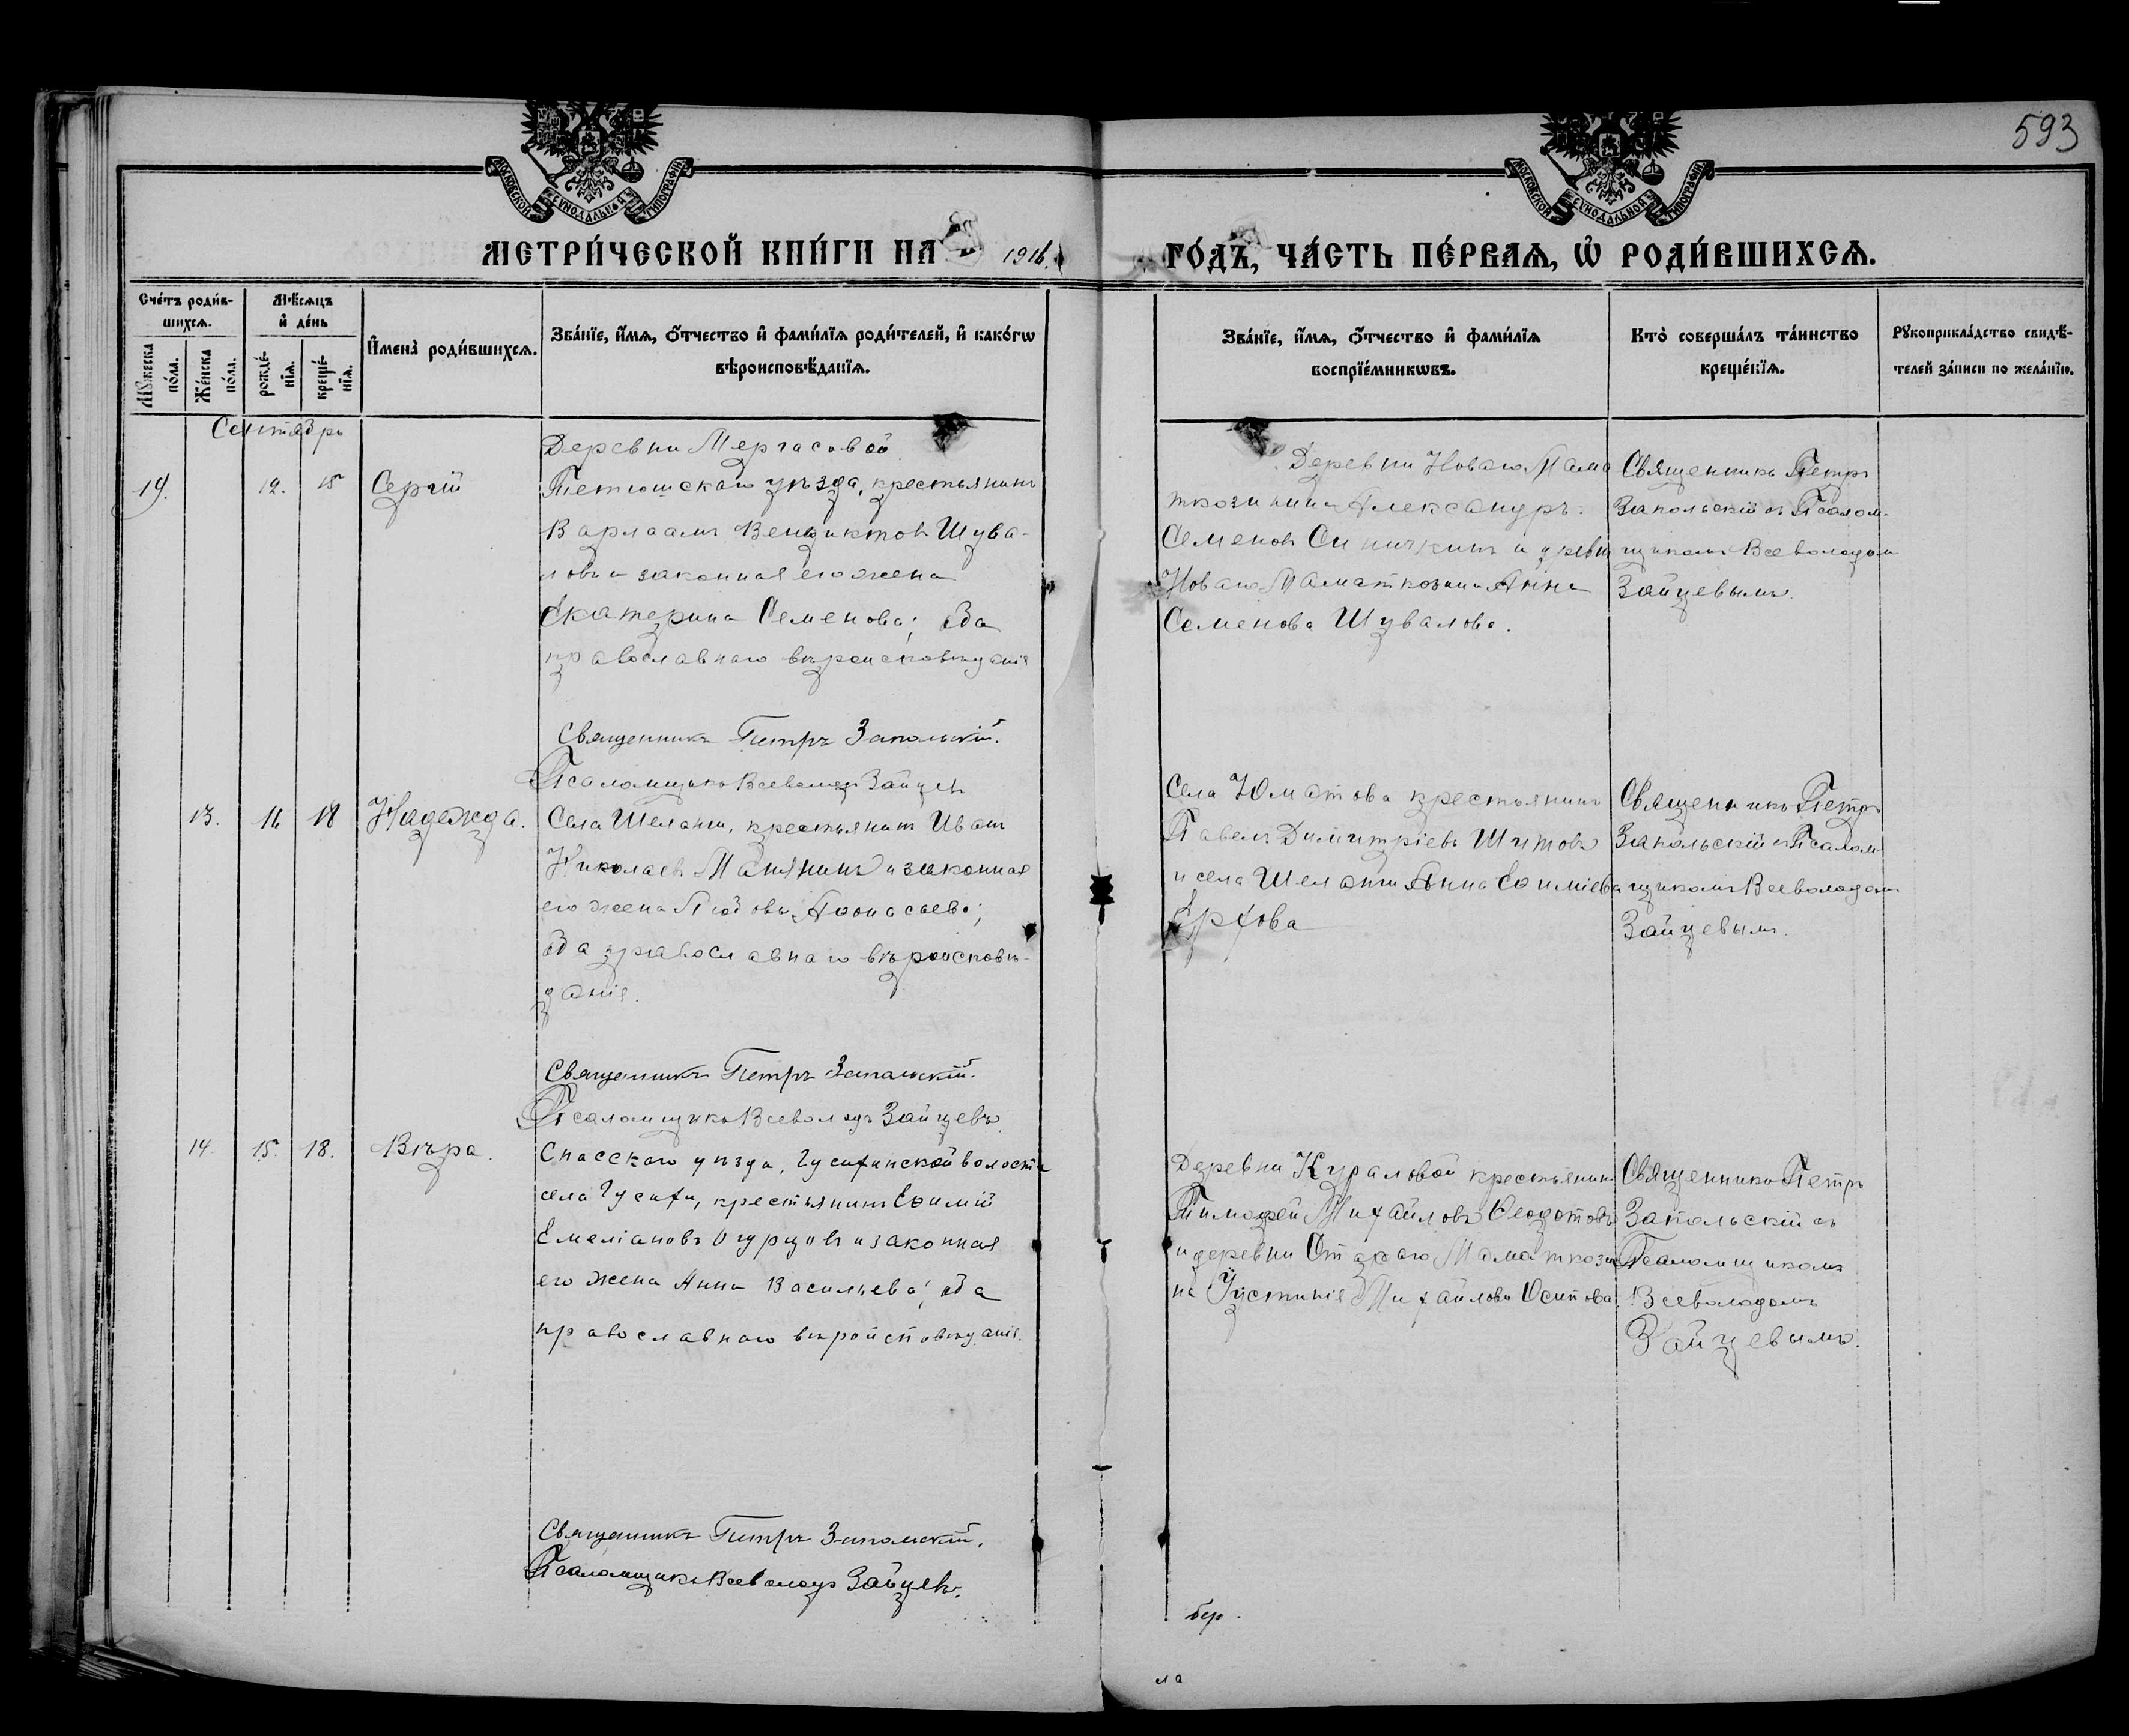 593
МОСКОВСКОЙ СУНОДАЛЬНОЙ ТИПОГРАФІИ
МОСКОВСКОЙ СУНОДАЛЬНОЙ ТИПОГРАФІИ
МЕТРИ́ЧЕСКОЙ КНИ́ГИ НА 1916. ГО́ДЪ, ЧА́СТЬ ПЕ́РВАѦ, Ѡ҆ РОДИ́ВШИХСѦ.
Сче́тъ роди́в-
шихсѧ.
Мꙋжеска по́ла.
Же́нска по́ла.
Мѣ́сѧцъ
и҆ де́нь
рожде́-
нїѧ.
креще́-
нїѧ.
И҆мена̀ роди́вшихсѧ.
Зва́нїе, и҆́мѧ, ѻ҆́тчество и҆ фами́лїѧ роди́телей, и҆ како́гѡ
вѣроисповѣ́данїѧ.
Зва́нїе, и҆́мѧ, ѻ҆́тчество и҆ фами́лїѧ
воспрїе́мникѡвъ.
Кто̀ соверша́лъ та́инство
креще́нїѧ.
Рꙋкоприкла́дство свидѣ́-
телей за́писи по жела́нїю.
Сентябрь
19.
12.
15
Сергій
Деревни Мергасовой
Тетюшскаго уѣзда, крестьянинъ
Варлаамъ Венедиктовъ Шува-
ловъ и законная его жена
Екатерина Семенова; оба
православнаго вѣроисповѣданія
Священникъ Петръ Запольскій.
Псаломщикъ Всеволодъ Зайцевъ
Деревни Новаго Мама
ткозина Александръ
Семеновъ и деревни
Новаго Маматкозина Анна
Семенова Шувалова.
Священникъ Петръ
Запольскій съ Псалом-
щикомъ Всеволодом
Зайцевымъ.
13.
16
18
Надежда.
Села Шеланги, крестьянинъ Иванъ
Николаевъ Манянинъ и законная
его жена Любовь Аѳонасьева;
оба православнаго вѣроисповѣ-
данія.
Священникъ Петръ Запольскій.
Псаломщикъ Всеволодъ Зайцевъ.
Села Юматова крестьянинъ
Павелъ Димитріевъ Шитовъ
и села Шеланги Анна Еѳиміева
Ерхова
Священникъ Петръ
Запольскій съ Псалом-
щикомъ Всеволодомъ
Зайцевымъ.
14.
15.
18.
Вѣра.
Спасскаго уѣзда, Гусихинской волости
села Гусихи, крестьянинъ Еѳимій
Емеліановъ Огурцовъ и законная
его жена Анна Васильева; оба
православнаго вѣроисповѣданія.
Священникъ Петръ Запольскій.
Псаломщикъ Всеволодъ Зайцевъ.
Деревни Кураловой крестьянинъ
Тимоѳей Михайловъ Ѳедотовъ
и деревни Стараго Маматкози
на Іустинія Михайлова Осипова.
Священникъ Петръ
Запольскій съ
Псаломщикомъ
Всеволодомъ
Зайцевымъ.
бер.
ла